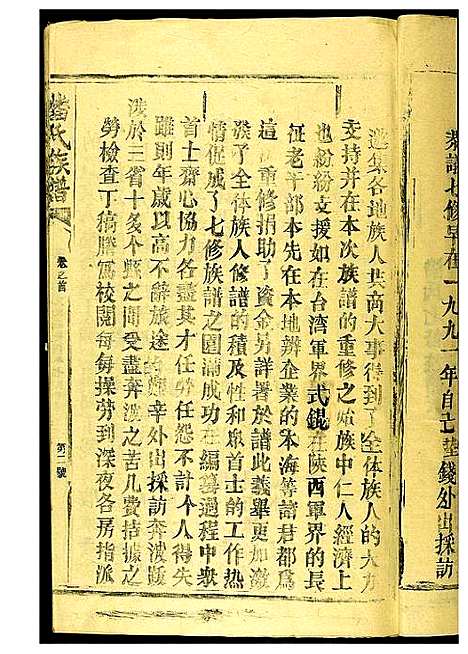 恭議七修早在一九九一年自己墊錢外出採訪
邀集各地族人共商大事得到了全体族人的大力
支持并在本次族譜的重修之始族中仁人經濟上
也紛紛支援如在台湾軍界式錕在陝西軍界的長
征老干部本先在本地辨企業的本海等諸君都爲
這次重修捐助了資金另詳署於譜此義舉更加激
發了全体族人修譜的積及性和衆首士的工作热
情促成了七修族譜之圆滿成功在編纂過程中衆
首士齋心协力各盡其才任勞任怨不計个人得失
雖則年歲以高不辭旅途艱辛外出採訪奔波跋
涉於三省十多个縣之間受盡奔波之苦几費拮據之
勞檢查丁稿謄寫校閱每每操劳到深夜各房指派
氏族譜
卷之首
第二號